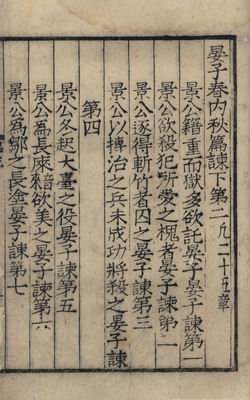 晏子春秋內篇諫下第二凡二十五章
景公藉重而獄多欲託晏子晏子諫第一
景公欲殺犯所愛之槐者晏子諫第二
景公逐得斬竹者囚之晏子諫第三
景公以摶治之兵未成功將殺之晏子諫
第四
景公冬起大臺之役晏子諫第五
景公為長庲欲美之晏子諫第六
景公為鄒之長塗晏子諫第七